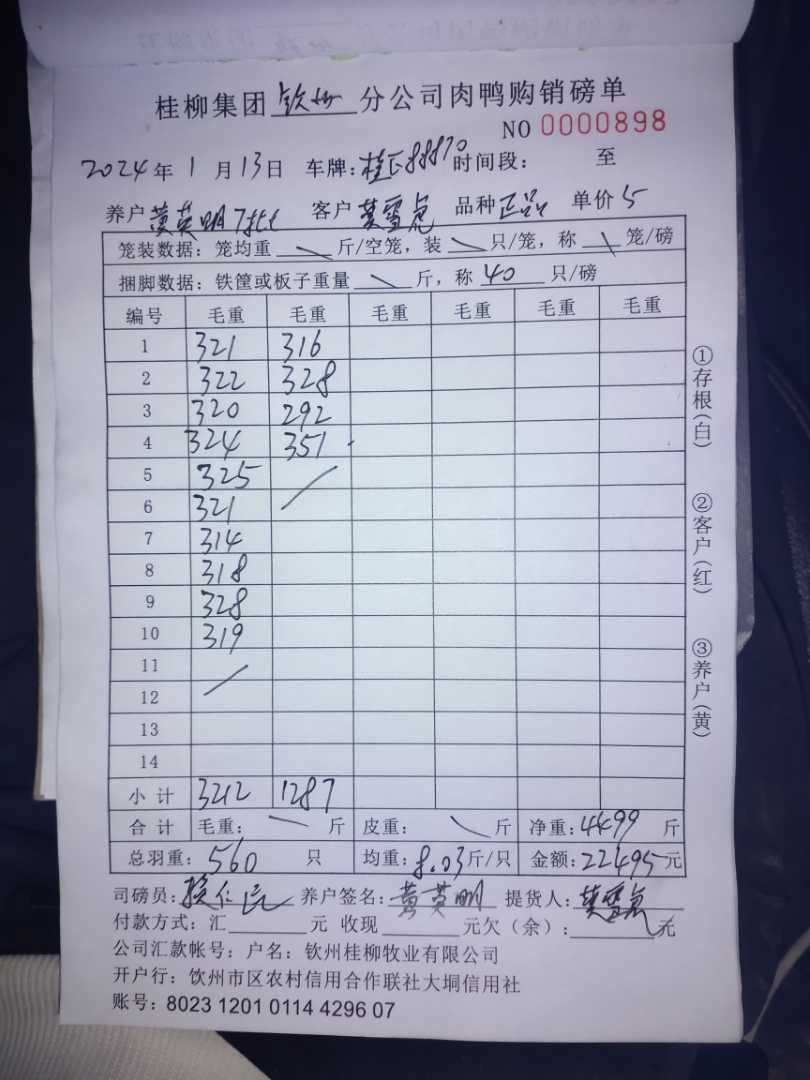 桂柳集团 钦州 分公司肉鸭购销磅单
NO 0000898
2024年1月13日 车牌:桂E88870 时间段: 至
养户 黄英明7批 客户 莫雪虎 品种 正品 单价 5
笼装数据:笼均重 \ 斤/空笼,装 \ 只/笼,称 \ 笼/磅
捆脚数据:铁筐或板子重量 \ 斤,称 40 只/磅
编号 毛重 毛重 毛重 毛重 毛重 毛重
1 321 316
2 322 328
3 320 292
4 324 351
5 325 /
6 321
7 314
8 318
9 328
10 319
11 /
12
13
14
小计 3212 1287
合计 毛重: \ 斤 皮重: \ 斤 净重:4499 斤
总羽重:560 只 均重:8.03斤/只 金额:22495元
司磅员: 养户签名:黄英明 提货人:莫雪虎
付款方式:汇 元 收现 元欠(余): 元
公司汇款帐号:户名:钦州桂柳牧业有限公司
开户行:饮州市区农村信用合作联社大垌信用社
账号:8023 1201 0114 4296 07
①存根(白)
②客户(红)
③养户(黄)